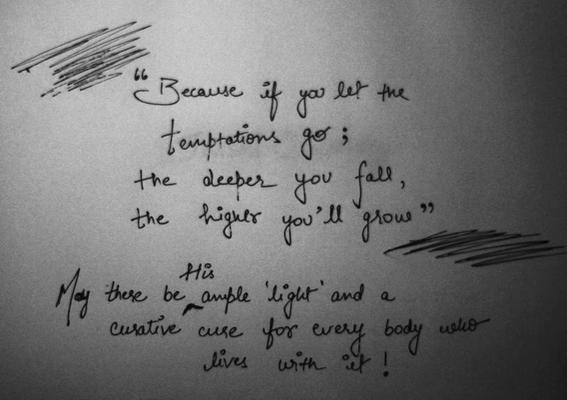 “Because if you let the
temptations go ;
the deeper you fall,
the higher you'll grow”
May there be His ample 'light' and a
curative cure for every body who
lives with it !